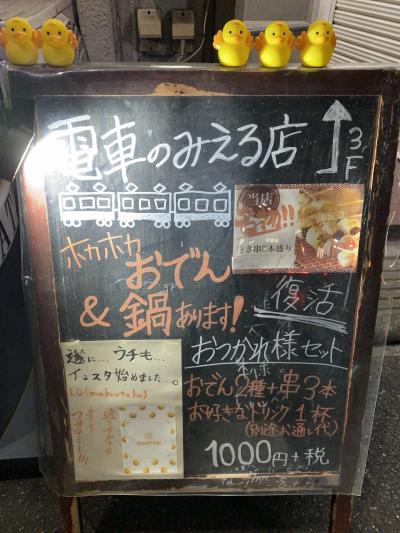 電車のみえる店
3F
当店
き串に本盛り
ホカホカ
おでん
&鍋あります!
復活
おつかれ様セット
おでん2種+串3本
お好きなドリンク1杯
(別途お通し代)
1000円+税
遂に…ウチも…
インスタ始めました…。